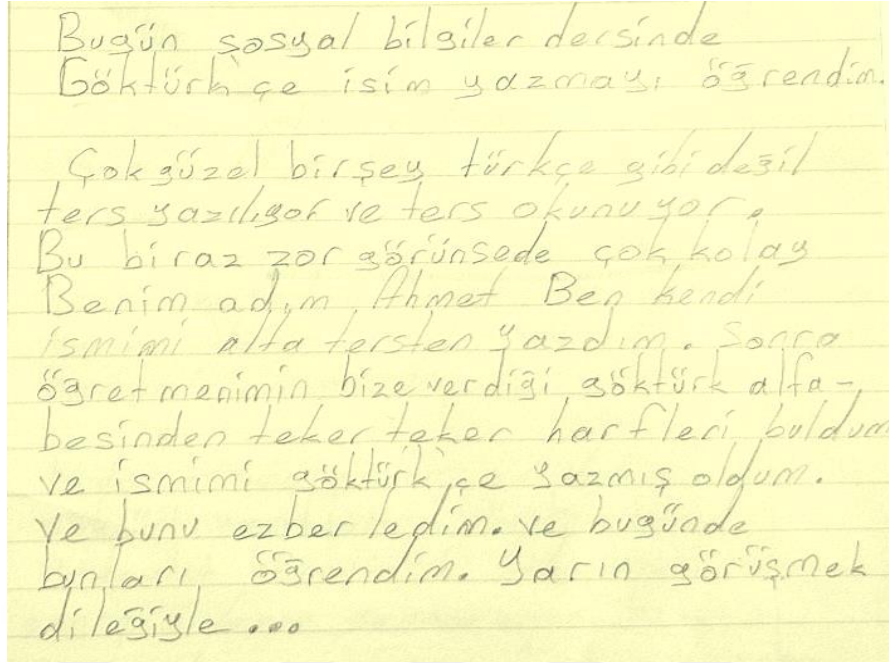 Bugün sosyal bilgiler dersinde
Göktürk'çe isim yazmayı öğrendim.
Çok güzel birşey türkçe gibi değil
ters yazılıyor ve ters okunuyor.
Bu biraz zor görünsede çok kolay
Benim adım Ahmet Ben kendi
ismimi alta tersten yazdım. Sonra
öğretmenimin bize verdiği göktürk alfa-
besinden teker teker harfleri buldum
ve ismimi göktürk'çe yazmış oldum.
Ve bunu ezberledim. ve bugünde
bunları öğrendim. Yarın görüşmek
dileğiyle ...